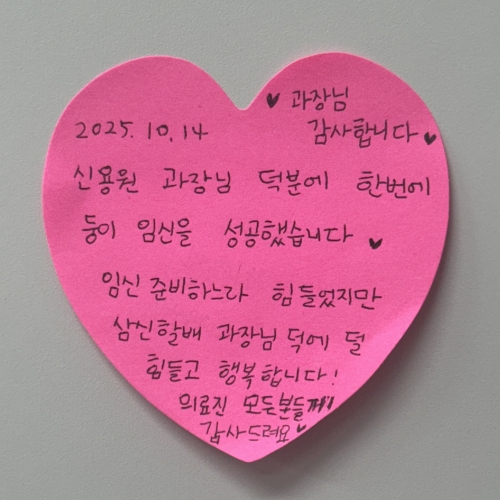 ♥ 과장님
2025. 10. 14 감사합니다 ♥
신용원 과장님 덕분에 한번에
둥이 임신을 성공했습니다 ♥
임신 준비하느라 힘들었지만
삼신할배 과장님 덕에 덜
힘들고 행복합니다!
의료진 모든분들께
감사드려요 ♥